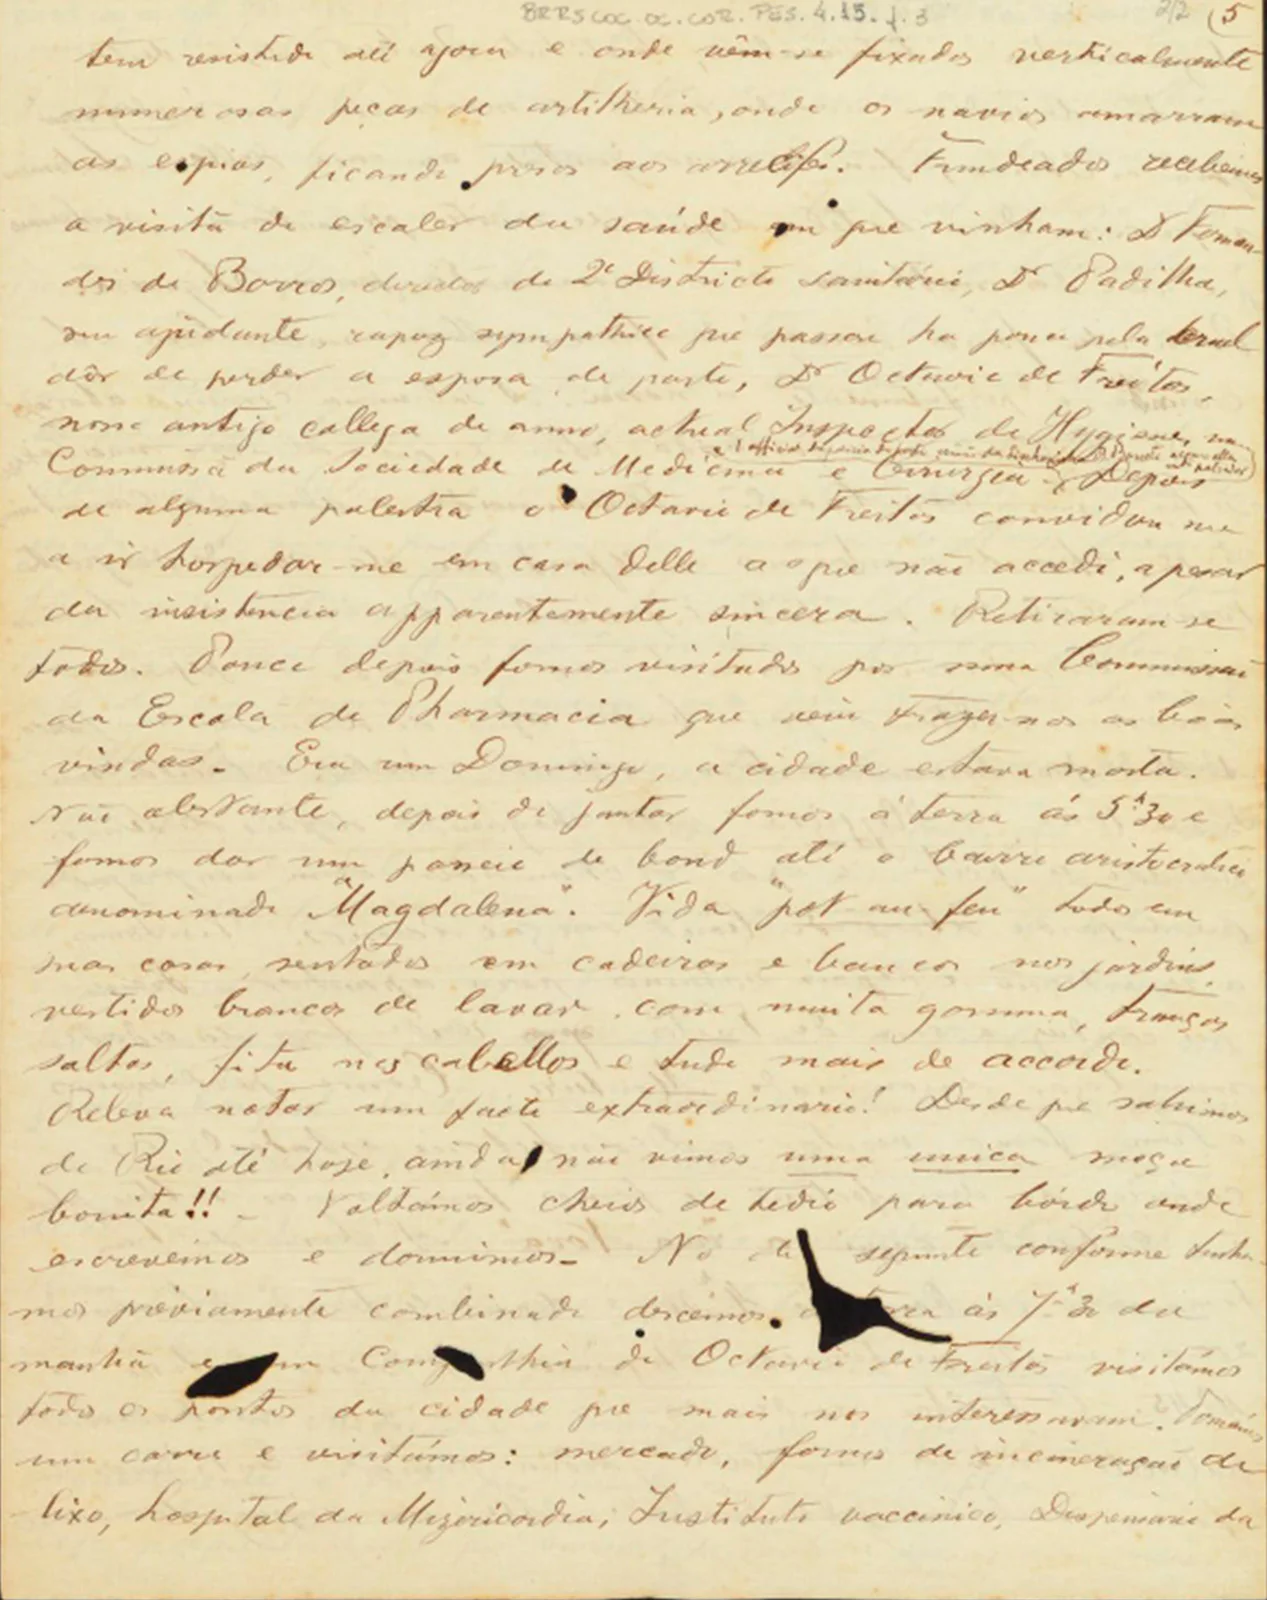 BR RJ COC OC. COR. PES. 4. 15. f. 3
2/2
5
tem resistido até agora e onde vêm-se fixados verticalmente
numerosas peças de artilharia, onde os navios amarram
as espias, ficando presos aos arrecifes. Fundeados recebemos
a visita do escaler da saúde em que vinham: Dr Fernan-
des de Barros, director do 2º Districto sanitario, Dr Padilha,
seu ajudante, rapaz sympathico que passou ha pouco pela cruel
dôr de perder a esposa de parto, Dr Octavio de Freitas,
nosso antigo collega de anno, actual Inspector de Hygiene,
Commissão da Sociedade de Medicina e Cirurgia. Depois
de alguma palestra o Octavio de Freitas convidou me
a ir hospedar-me em casa delle a o que não accedi, apesar
da insistencia apparentemente sincera. Retiraram-se
todos. Pouco depois fomos visitados por uma Commissão
da Escola de Pharmacia que veiu trazer-nos as bôas
vindas. Era um Domingo, a cidade estava morta.
Não obstante, depois de jantar fomos á terra ás 5h 30 e
fomos dar um passeio de bond até o bairro aristocratico
denominado "Magdalena". Vida "pot-au-feu" todos em
suas casas, sentados em cadeiras e bancos nos jardins,
vestidos brancos de lavar com muita gomma, tranças
soltas, fita nos cabellos e tudo mais de accordo.
Releva notar um facto extraordinario! Desde que sahimos
do Rio até hoje, ainda não vimos uma unica moça
bonita!! - Voltámos cheios de tedio para bórdo onde
escrevemos e dormimos. No dia seguinte conforme tinha-
mos préviamente combinado descêmos a terra ás 7h 30 da
manhã e em Companhia do Octavio de Freitas visitámos
todos os pontos da cidade que mais nos interessavam. Tomámos
um carro e visitámos: mercado, fornos de incineração de
lixo, hospital da Misericordia, Instituto vaccinico, Dispensario da